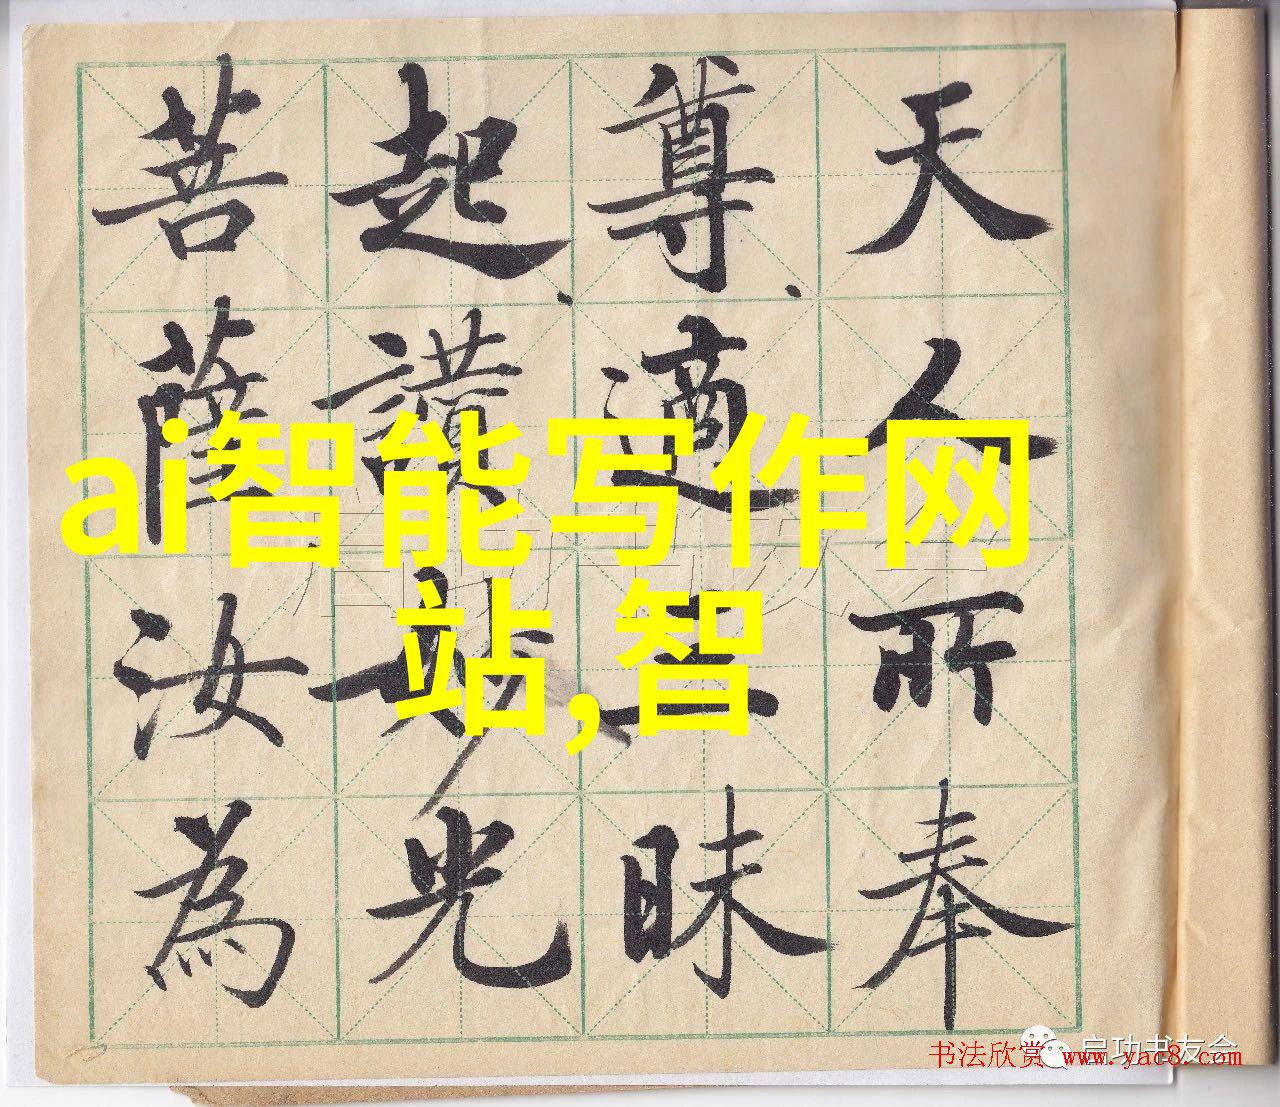 天人所奉
尊、適三昧
起、讚妙光
菩薩汝為
ai智能写作网
站,智
启功书友会
启功书友会
书法欣赏 www.yac8.com